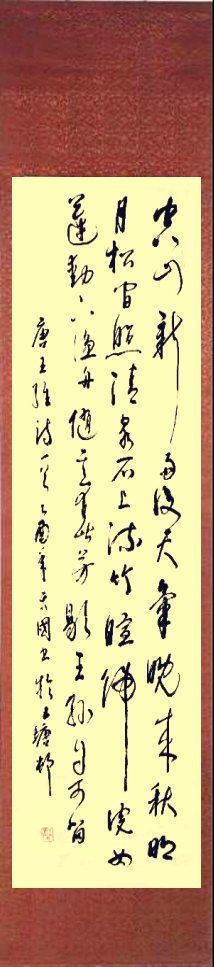 空山新雨後天氣晚來秋明
月松间照清泉石上流竹喧歸浣女
蓮動下漁舟隨意春芳歇王孫自可留
唐王維詩一首乙酉年國於塘邨